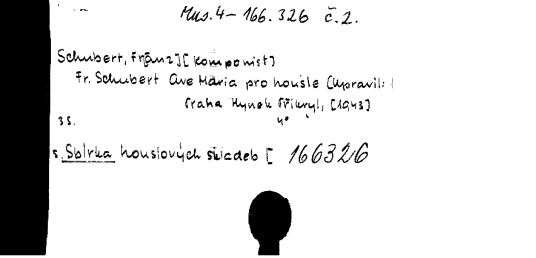 Mus.4-166.326 č.2.
Schubert, Franz][Komponist]
Fr. Schubert Ave Maria pro housle [Upravil:
Praha Hynek Přikryl, [1943]
3 s. 4°
s. Sbírka houslových skladeb [ 166326